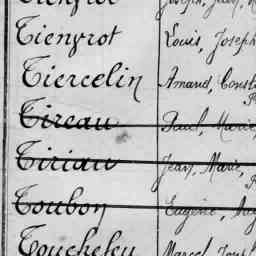 Tienfrot Joseph, Jean,
Tienfrot Louis, Joseph
Tiercelin Amand, Const
Tireau Paul, Marie,
Tiriau Jean, Marie,
Toubon Eugène, Aug
Toucheleu Marcel, Jos